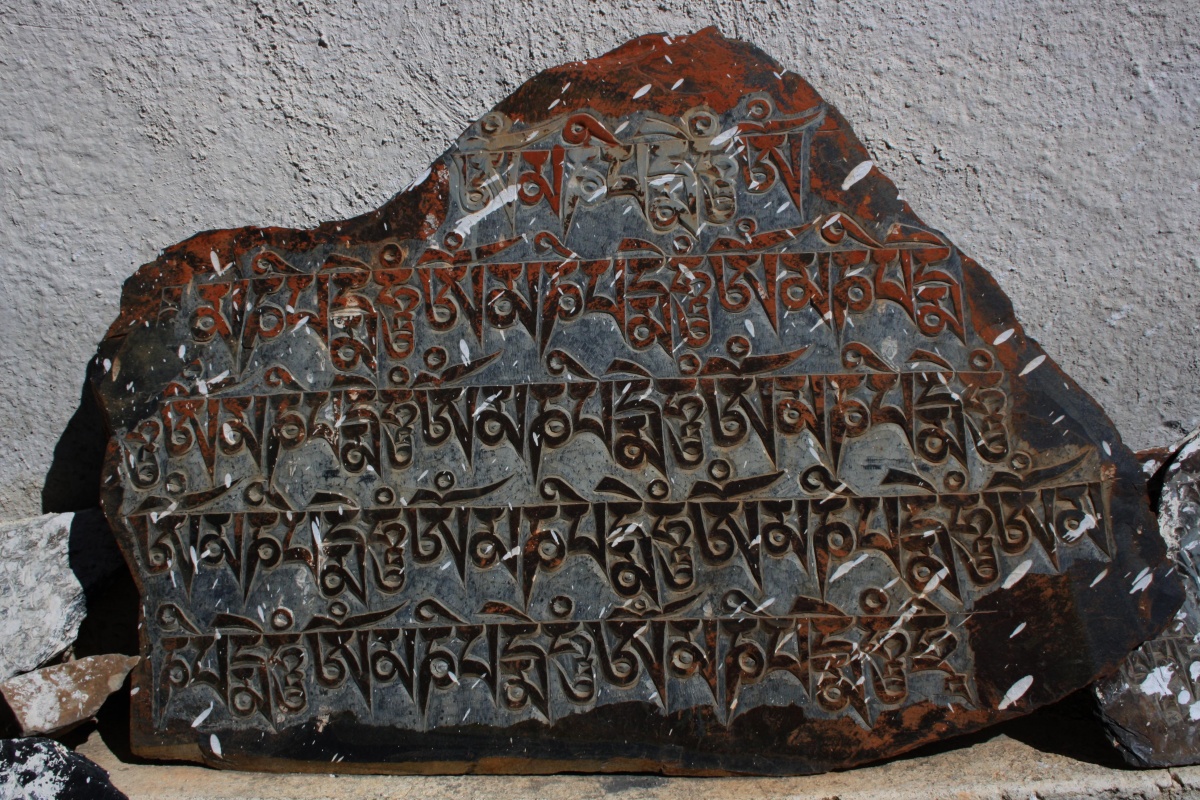 ཨོཾམཎིཔདྨེཧཱུྃཨོཾ
མཎིཔདྨེཧཱུྃཨོཾམཎིཔདྨེཧཱུྃཨོཾམཎིཔདྨེ
ཧཱུྃཨོཾམཎིཔདྨེཧཱུྃཨོཾམཎིཔདྨེཧཱུྃཨོཾམཎིཔདྨེཧཱུྃ
ཨོཾམཎིཔདྨེཧཱུྃཨོཾམཎིཔདྨེཧཱུྃཨོཾམཎིཔདྨེཧཱུྃཨོཾམ
ཎིཔདྨེཧཱུྃཨོཾམཎིཔདྨེཧཱུྃཨོཾམཎིཔདྨེཧཱུྃ